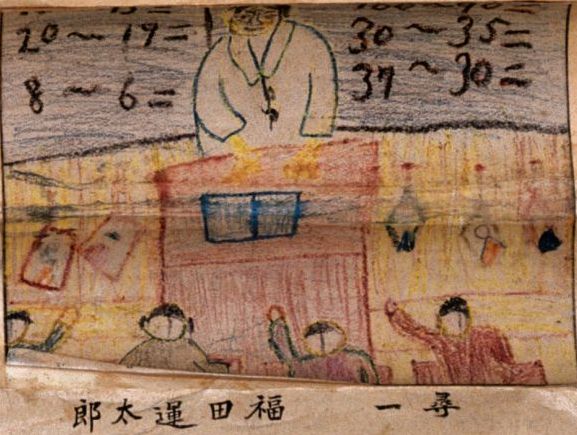 20〜17=
8〜6=
30〜35=
37〜30=
尋一 福田運太郎